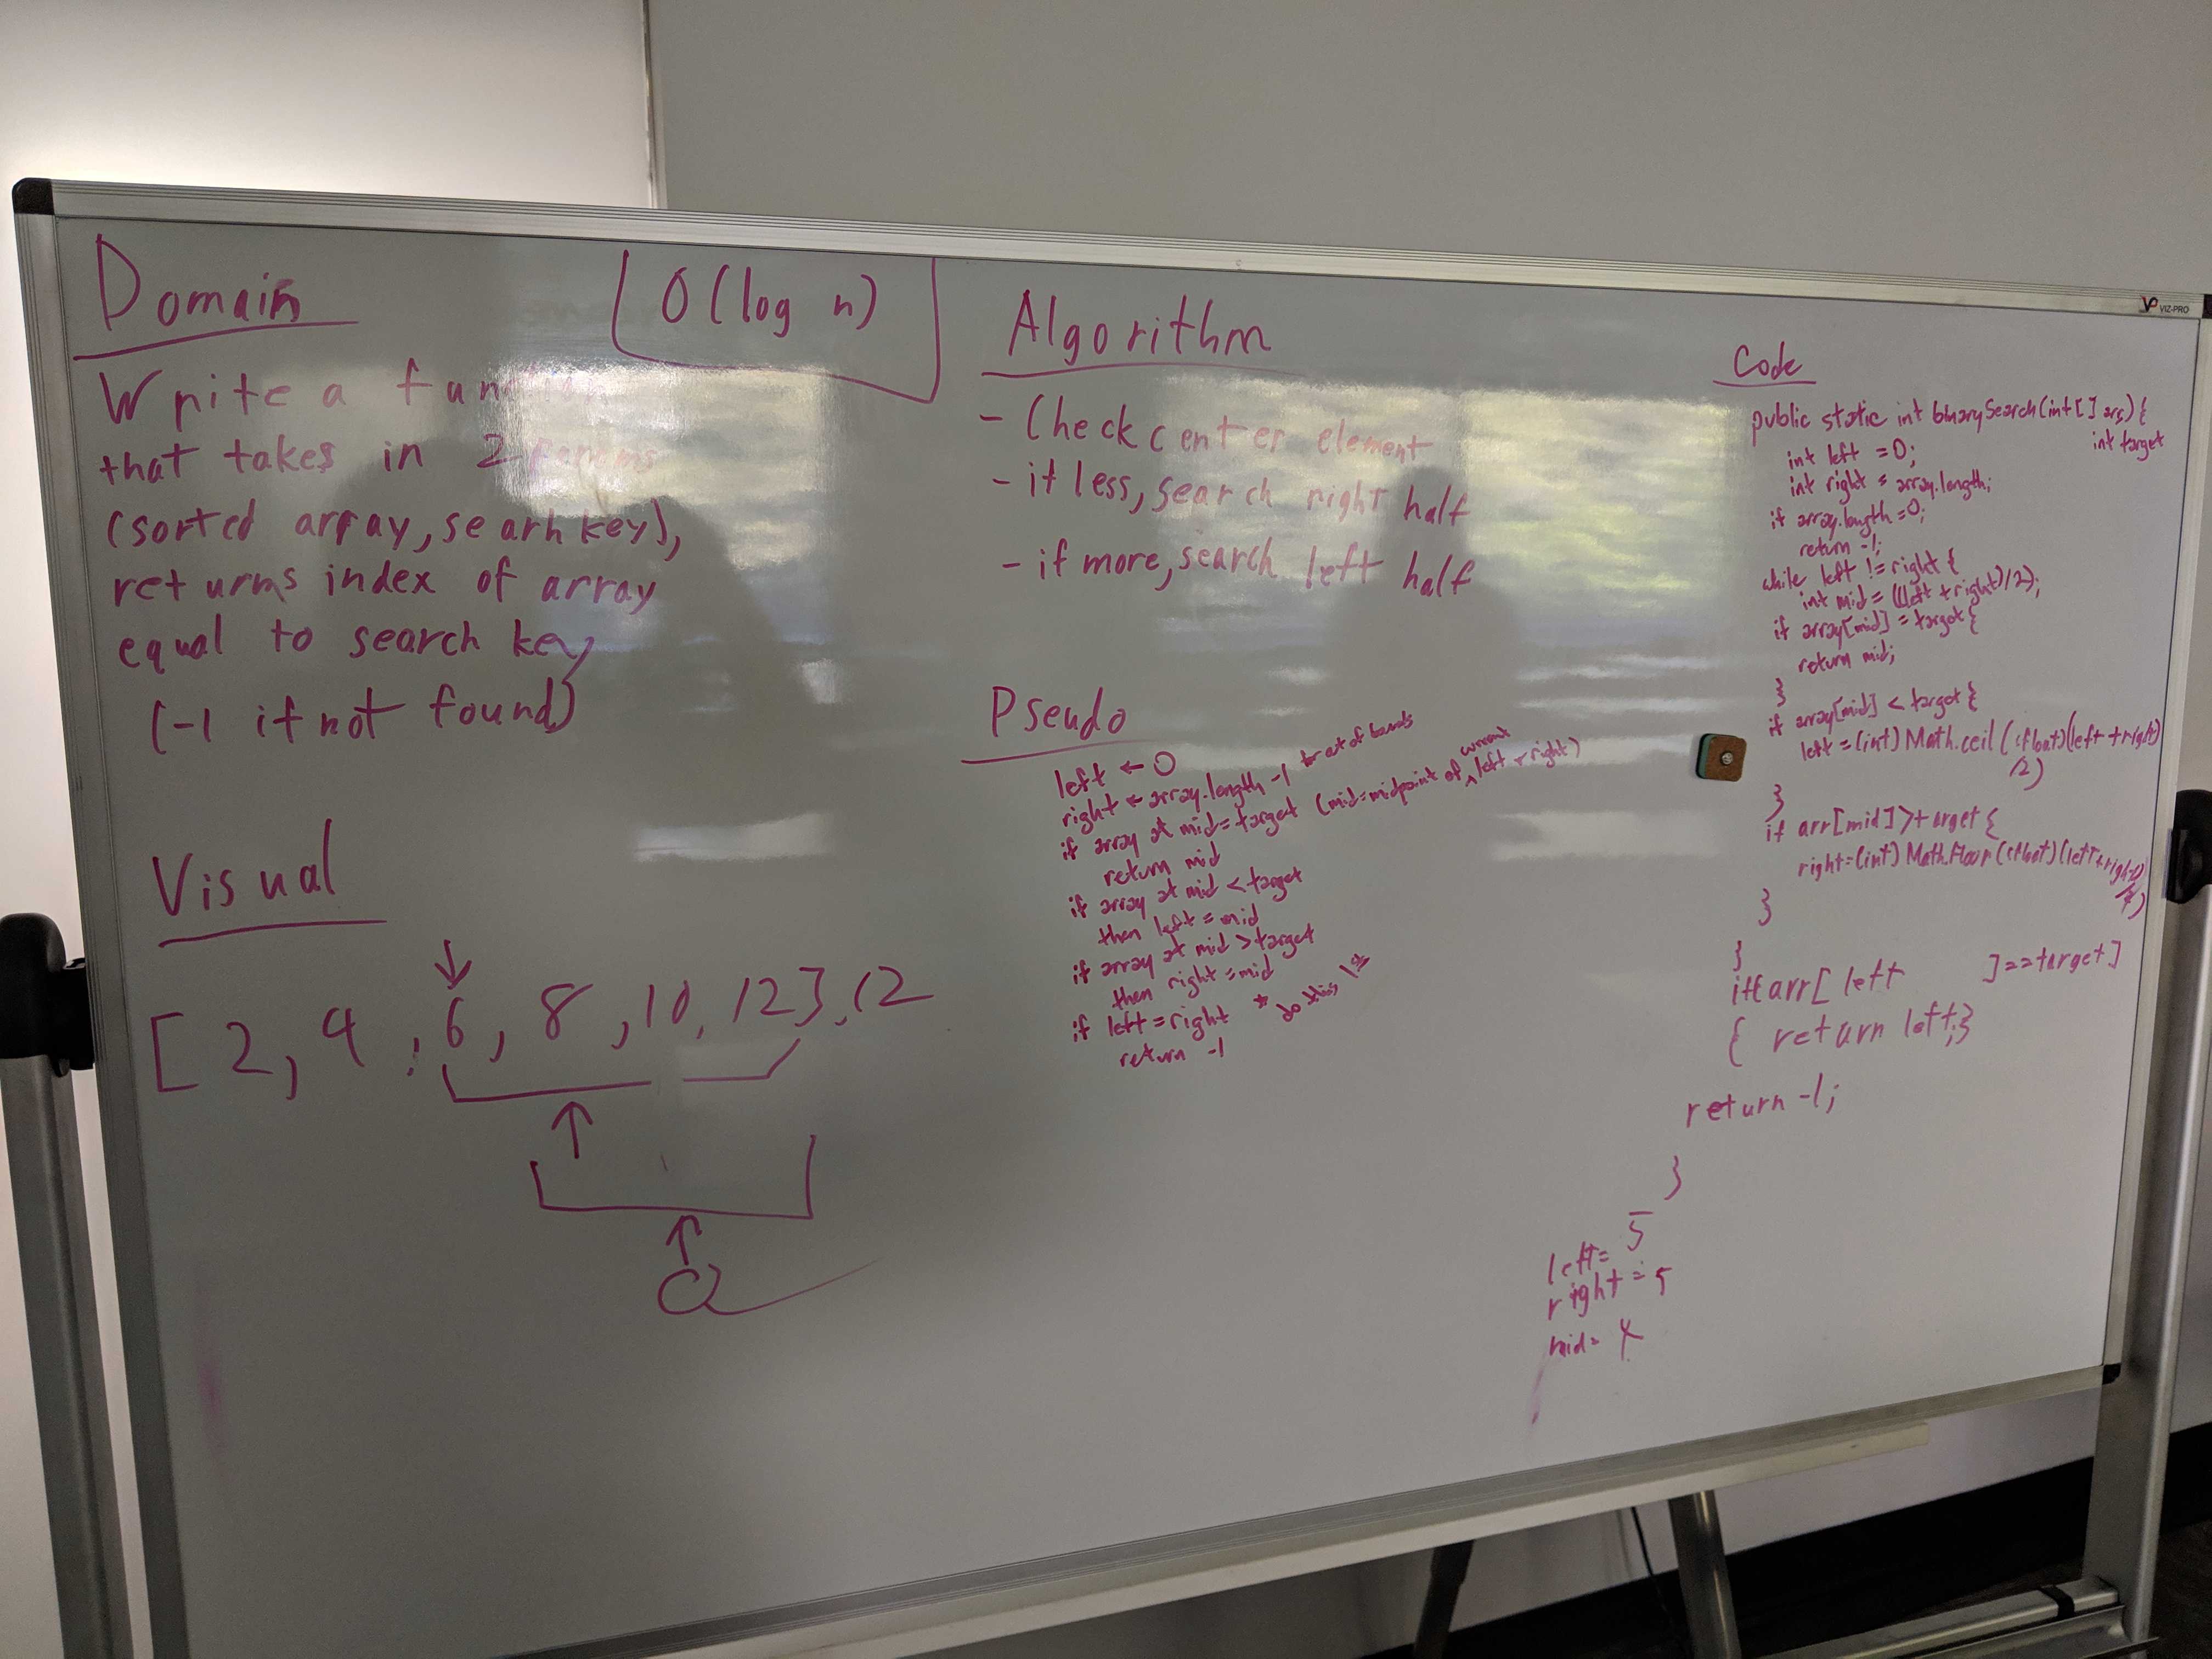 Domain
O(log n)
Write a function
that takes in 2 params
(sorted array, searh key),
returns index of array
equal to search key
(-1 if not found)
Visual
[ 2, 4, 6, 8, 10, 12], 12
Algorithm
- Check center element
- if less, search right half
- if more, search left half
Pseudo
left ← 0
right ← array.length -1 for out of bounds
if array at mid = target (mid = midpoint of current left + right)
return mid
if array at mid < target
then left = mid
if array at mid > target
then right = mid
if left = right * do this 1st
return -1
Code
public static int binarySearch(int[] arr) {
int target
int left = 0;
int right = array.length;
if array.length = 0;
return -1;
while left != right {
int mid = ((left + right)/2);
if array[mid] = target {
return mid;
}
if array[mid] < target {
left = (int) Math.ceil ((float)(left + right)
/2)
}
if arr[mid] > target {
right = (int) Math.floor ((float)(left + right)
}
}
if(arr[ left ] == target]
{ return left; }
return -1;
}
left = 5
right = 5
mid = 4
VP VIZ-PRO